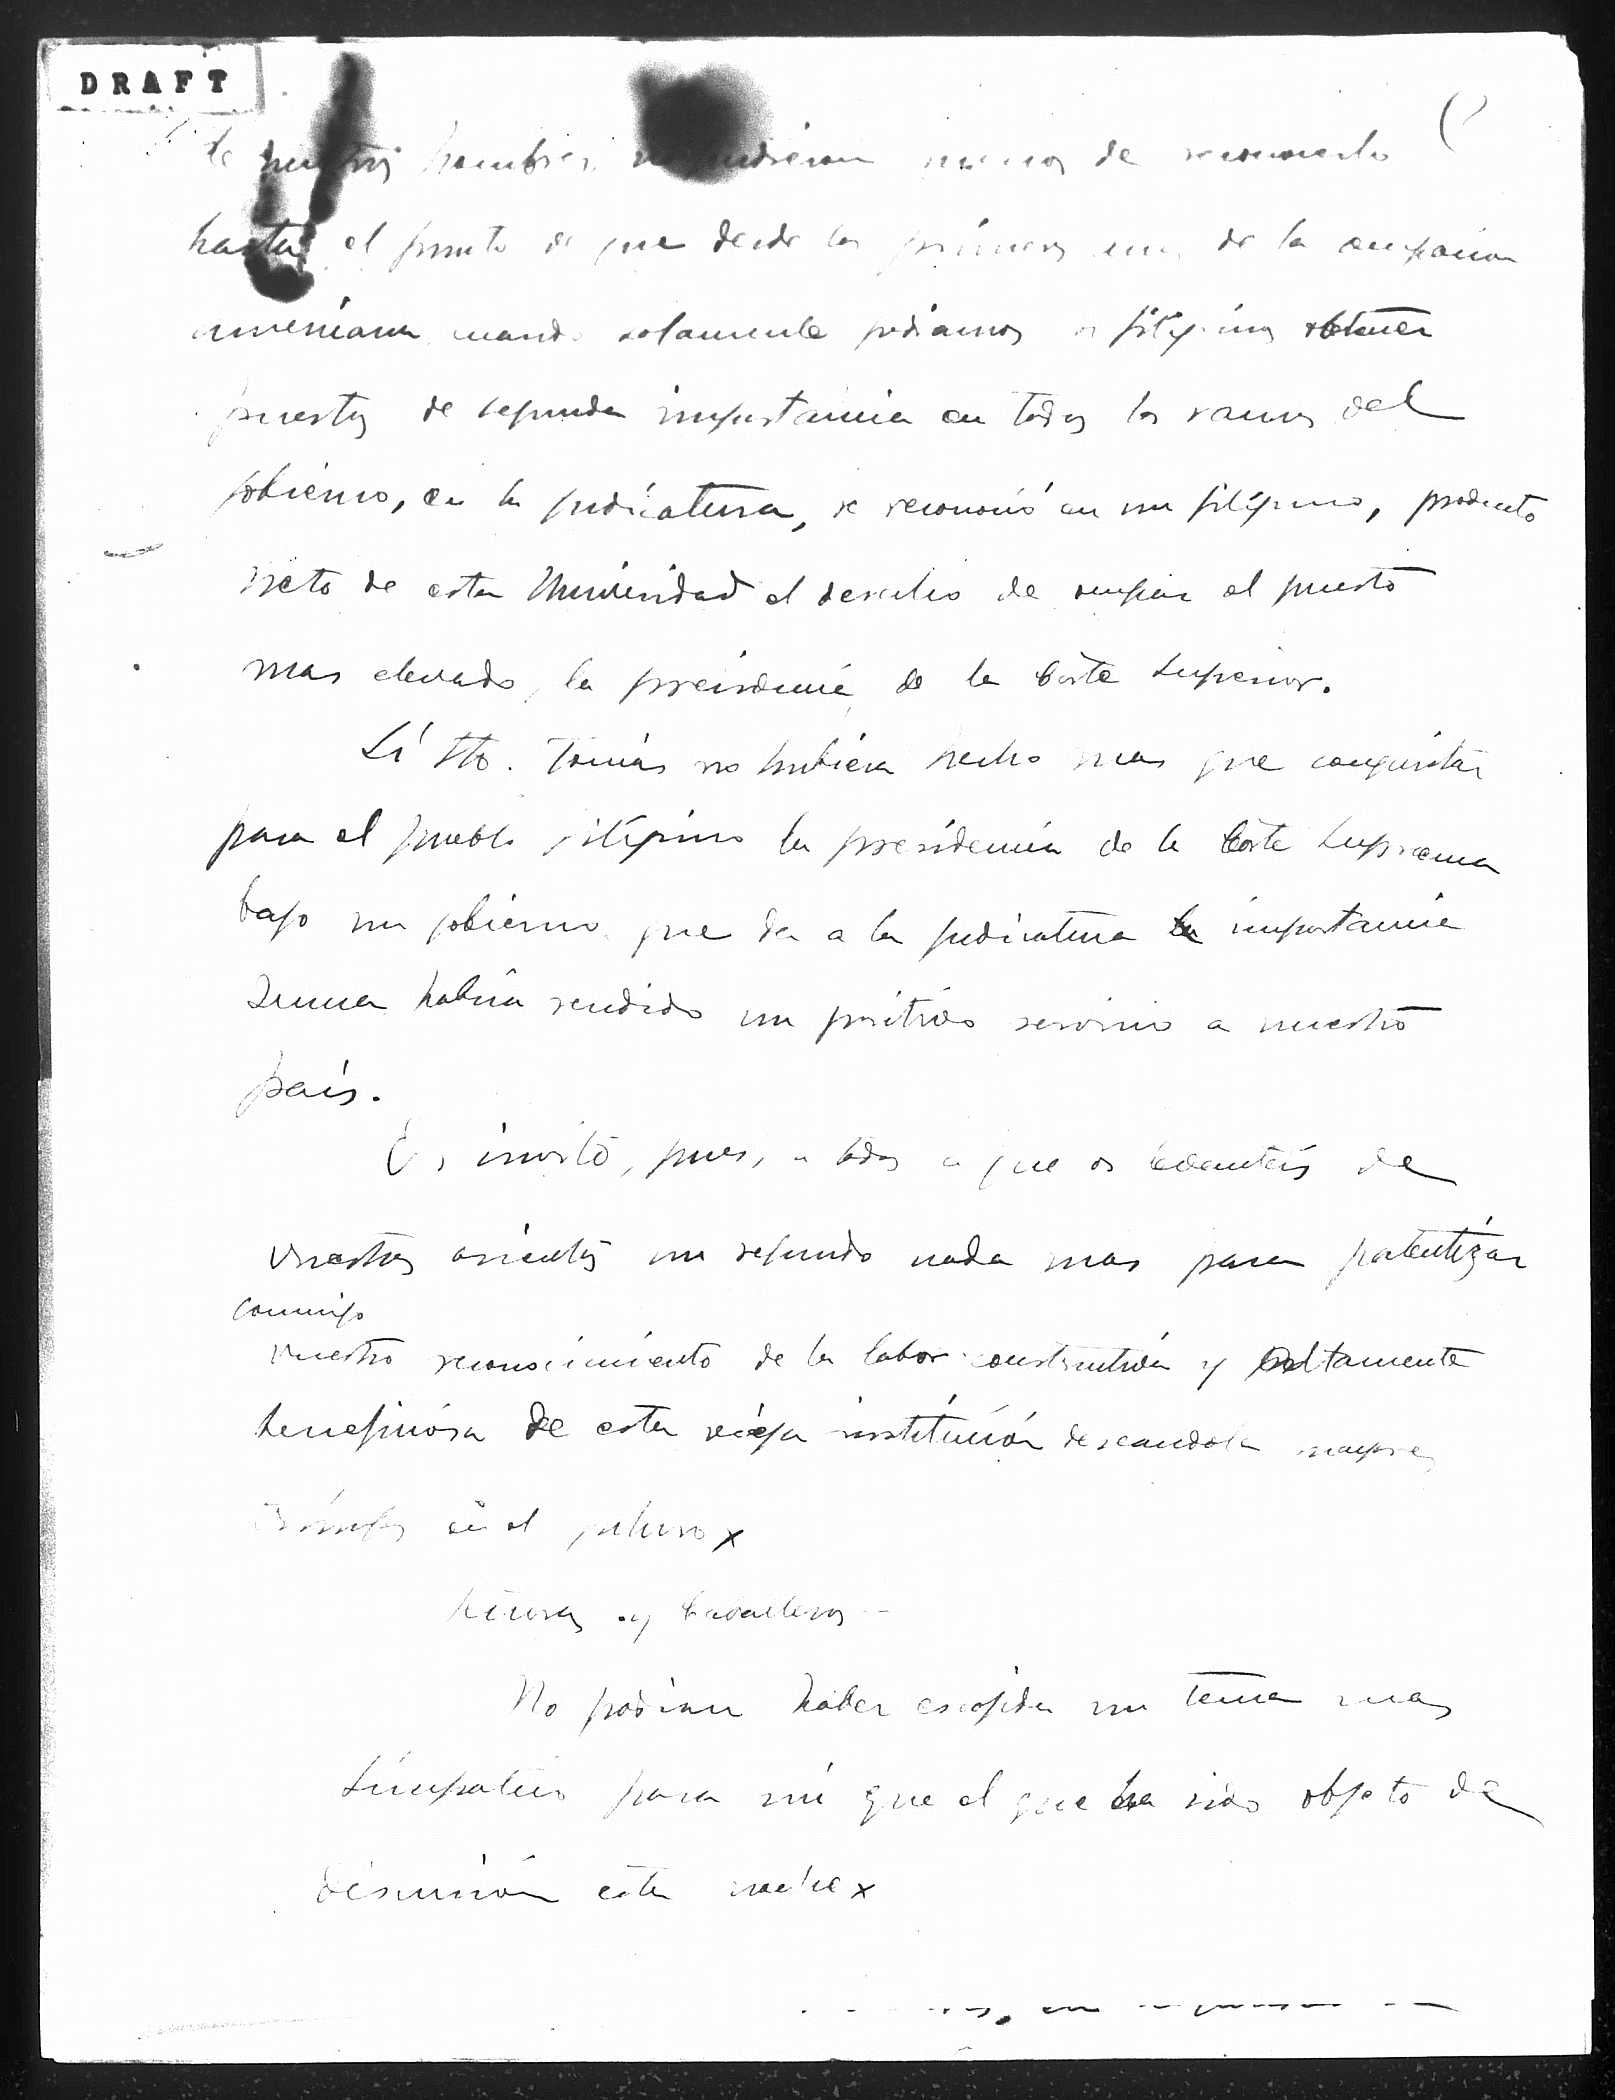 DRAFT
de nuestros hombres, no pudieron menos de reconocerlo
hasta el punto de que desde los primeros de la ocupacion
americana cuando solamente podiamos os filipinos obtener
puestos de segunda importancia en todos los ramos del
gobierno, en la judicatura, se reconoció en un filipino, producto
neto de esta Universidad el derecho de ocupar el puesto
mas elevado, la presidencia de la Corte Superior.
Si Sto. Tomás no hubiera hecho mas que conquistar
para el pueblo filipino la presidencia de la Corte Suprema
bajo un gobierno que da a la judicatura la importancia
suma habria rendido un positivo servicio a nuestro
país.
Os invito, pues, a todos a que os levanteis de
vuestros asientos un segundo nada mas para patentizar
conmigo
vuestro reconocimiento de la labor constructiva y altamente
beneficiosa de esta vieja institución deseandole mayores
triunfos en el futuro x
Señoras y Caballeros -
No podian haber escogido un tema mas
simpatico para mi que el que ha sido objeto de
discusión esta noche x